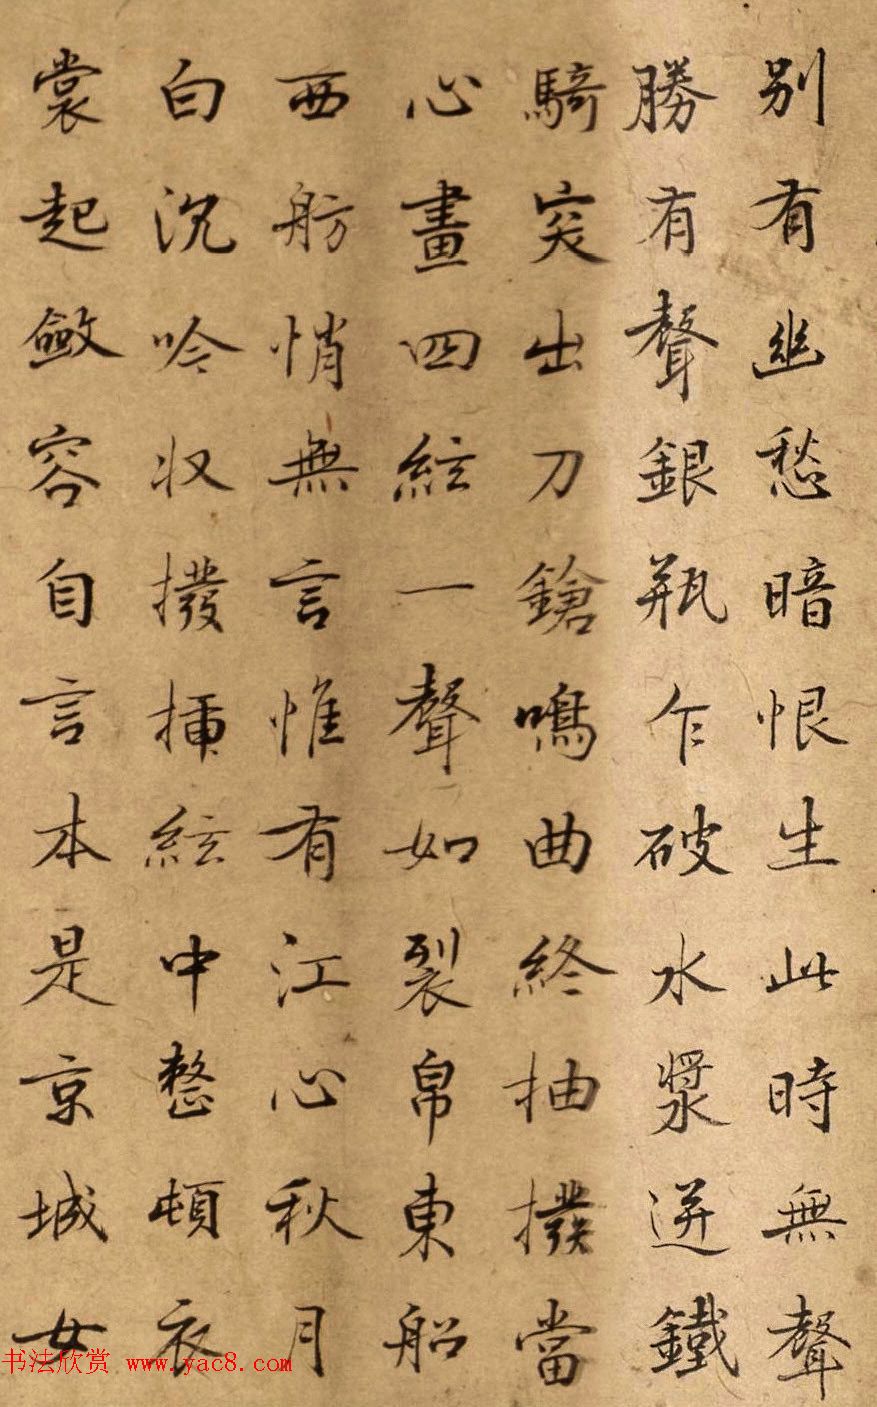 別有幽愁暗恨生此時無聲
勝有聲銀瓶乍破水漿迸鐵
騎突出刀鎗鳴曲終抽撥當
心畫四絃一聲如裂帛東船
西舫悄無言惟有江心秋月
白沉吟収撥揷絃中整頓衣
裳起斂容自言本是京城女
书法欣赏 www.yac8.com